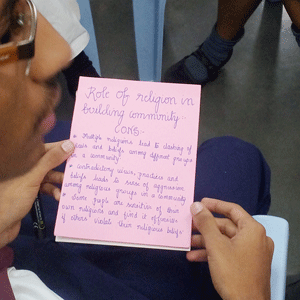 Role of religion in
building community..
CONS:-
• Multiple religions lead to clashing of
and beliefs among different groups
in a community.
• Contradictory views, practises and
beliefs leads to sense of
among religious groups in a community
groups are sensitive of their
own religions and find it offensive
if others violate their religious beliefs.